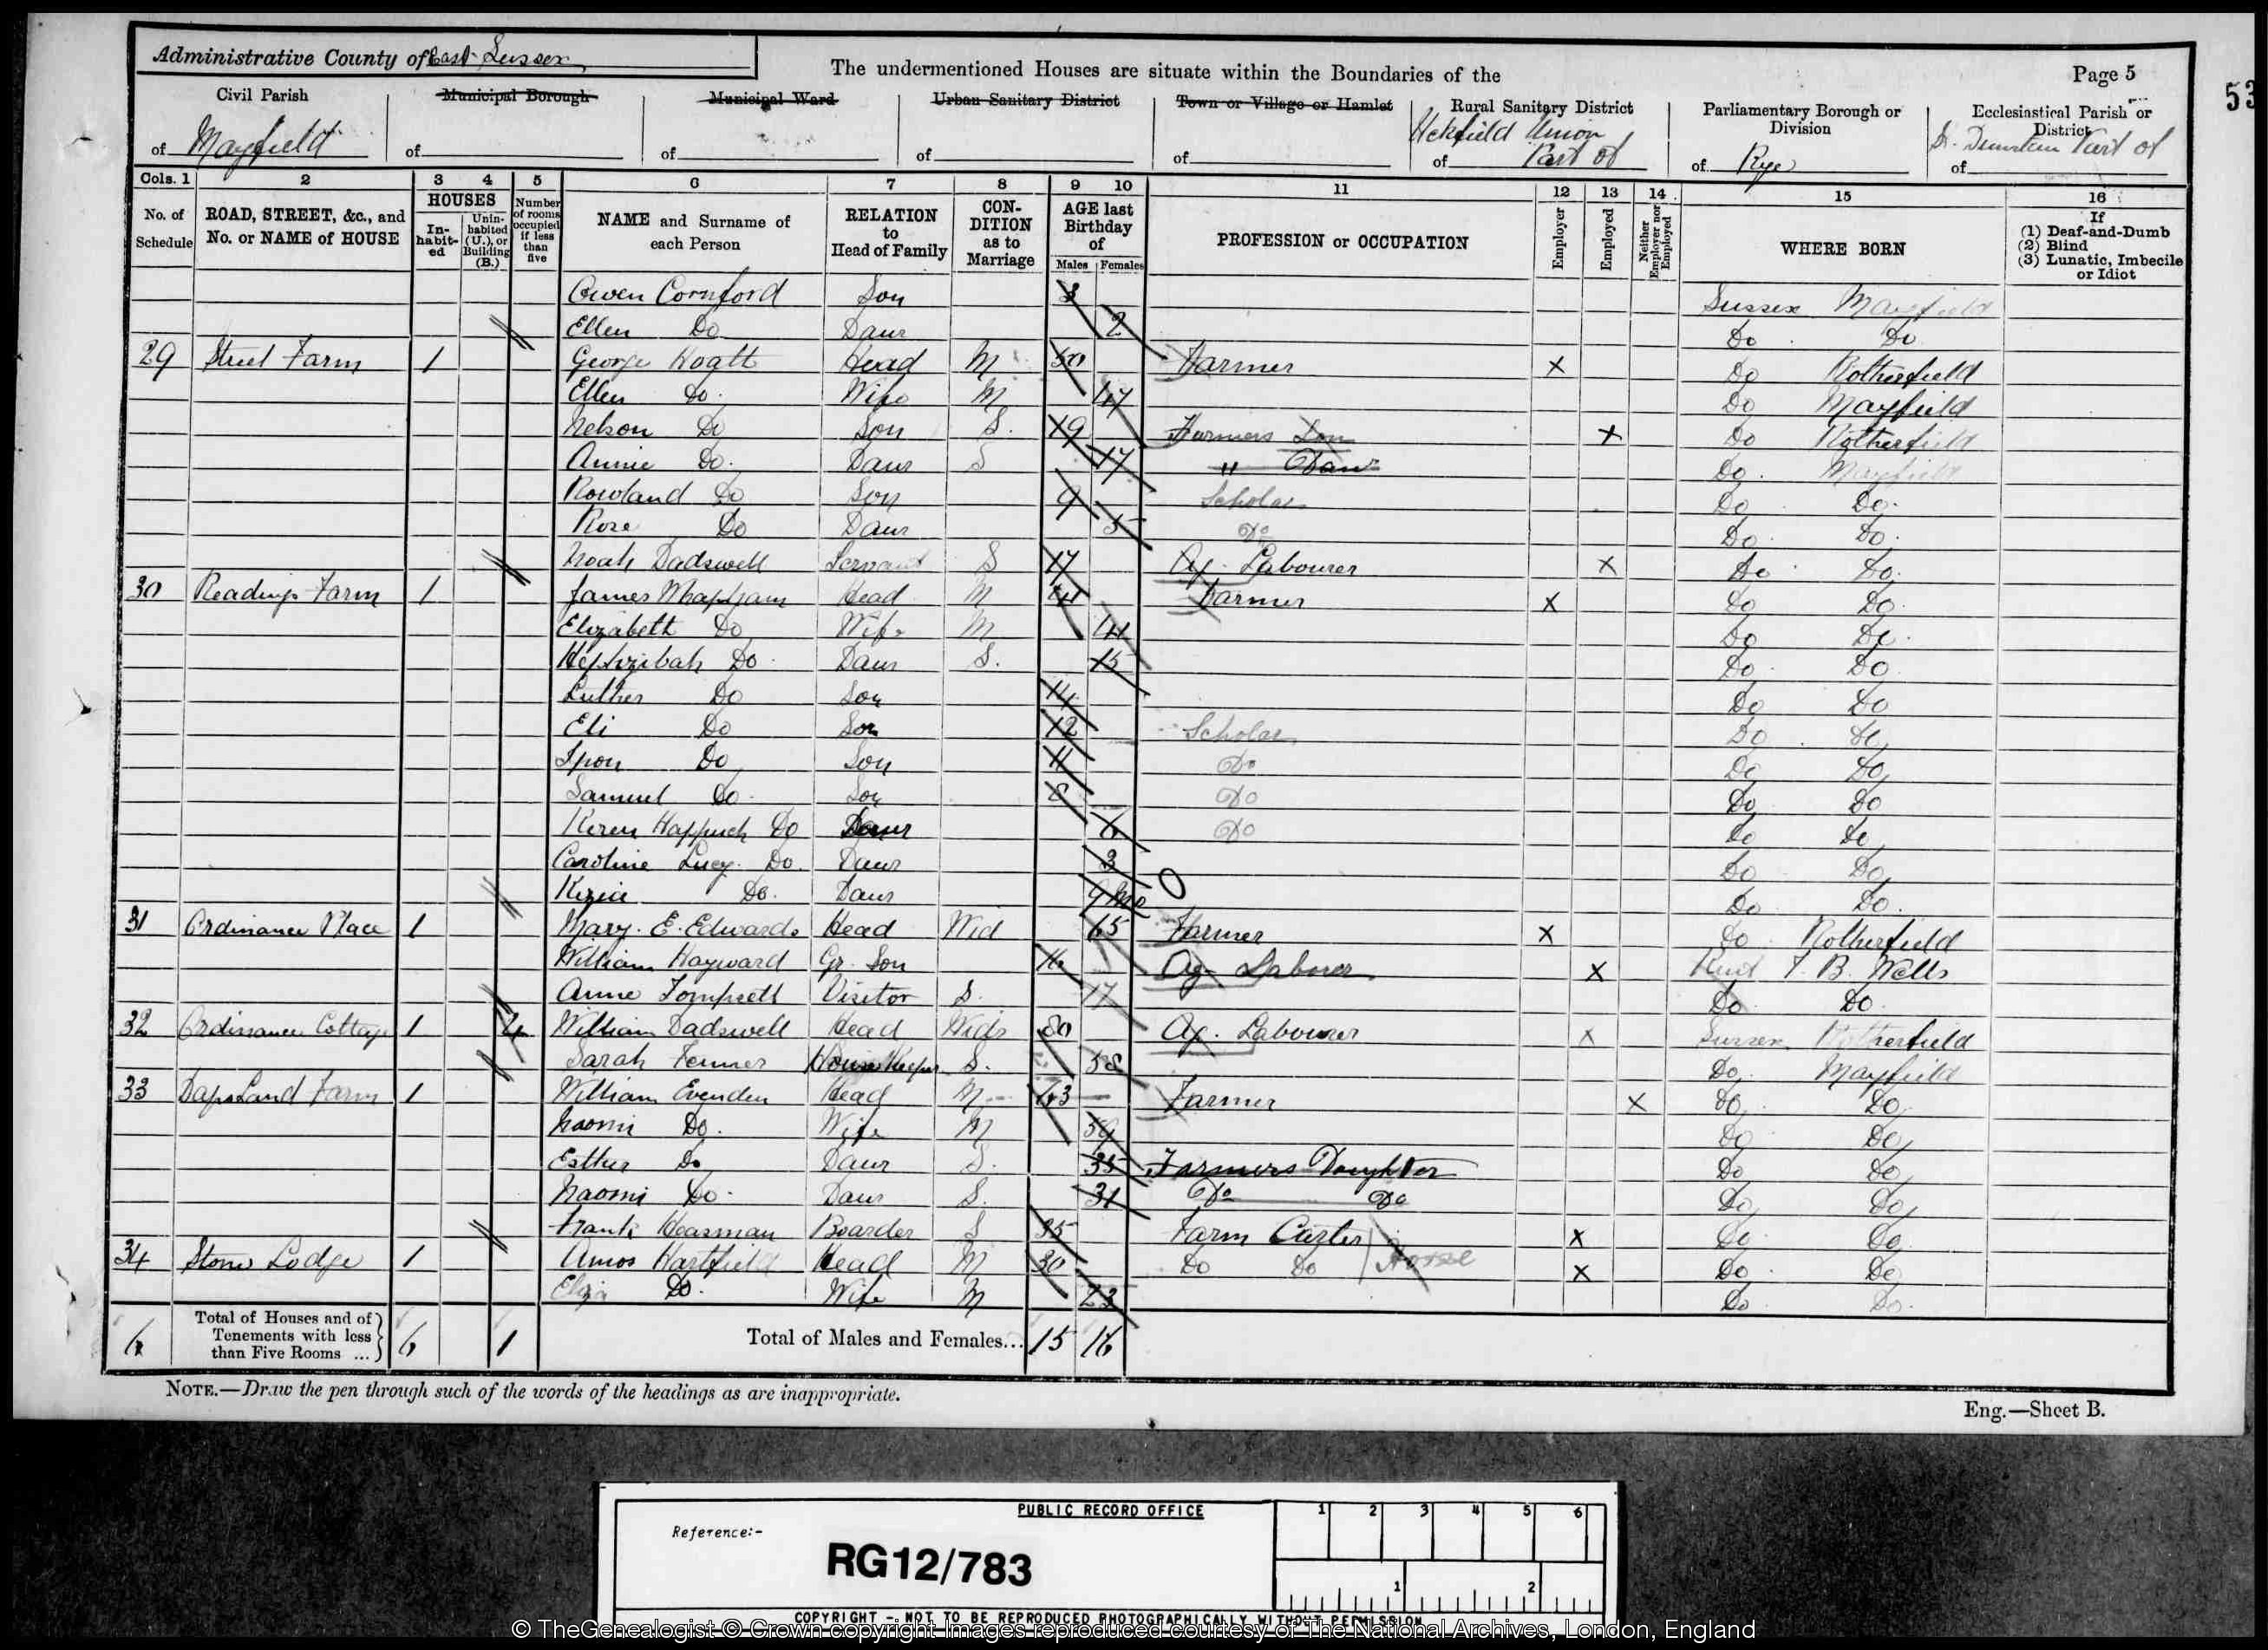 Administrative County of East Sussex
The undermentioned Houses are situate within the Boundaries of the
Page 5
53
Civil Parish
of Mayfield
Municipal Borough
of
Municipal Ward
of
Urban Sanitary District
of
Town or Village or Hamlet
of
Rural Sanitary District
Uckfield Union
of Part of
Parliamentary Borough or
Division
of Rye
Ecclesiastical Parish or
District
St. Dunstan Part of
of
Cols. 1 2 3 4 5 6 7 8 9 10 11 12 13 14 15 16
No. of
Schedule
ROAD, STREET, &c., and
No. or NAME of HOUSE
HOUSES
In-
habit-
ed
Unin-
habited
(U.), or
Building
(B.)
Number
of rooms
occupied
if less
than
five
NAME and Surname of
each Person
RELATION
to
Head of Family
CON-
DITION
as to
Marriage
AGE last
Birthday
of
Males Females
PROFESSION or OCCUPATION
Employer
Employed
Neither
Employer nor
Employed
WHERE BORN
If
(1) Deaf-and-Dumb
(2) Blind
(3) Lunatic, Imbecile
or Idiot
Owen Cornford Son 3 Sussex Mayfield
Ellen Do Daur 2 Do Do
29 Street Farm 1 George Hoath Head M 50 Farmer X Do Rotherfield
Ellen Do. Wife M 47 Do Mayfield
Nelson Do Son S. 19 Farmers Son X Do Rotherfield
Annie Do. Daur S 17 " Daur Do. Mayfield
Rowland Do Son 9 Scholar Do Do.
Rose Do Daur 5 Do Do. Do.
Noah Dadswell Servant S 17 Ag. Labourer X Do Do.
30 Readings Farm 1 James Whapham Head M 44 Farmer X Do Do.
Elizabeth Do Wife M 44 Do Do.
Hephzibah Do. Daur S. 15 Do. Do
Luther Do Son 14 Do Do
Eli Do Son 12 Scholar Do. Do
Do Son 11 Do Do Do
Samuel Do. Son 8 Do Do Do
Keren Happuch Do Daur 6 Do Do Do
Caroline Lucy. Do. Daur 3 Do Do
Kezia Do. Daur 9 Mo 0 Do Do.
31 Ordinance Place 1 Mary. E. Edwards Head Wid 65 Farmer X Do Rotherfield
William Hayward Gr. Son 16 Ag. Laborer X Kent T. B. Wells
Anne Tompsett Visitor S. 17 Do Do.
32 Ordinance Cottage 1 4 William Dadswell Head Widr 80 Ag. Labourer X Sussex Rotherfield
Sarah Fenner House Keeper S. 58 Do. Mayfield
33 Farm 1 William Evenden Head M 63 Farmer X Do. Do.
Naomi Do. Wife M 59 Do Do
Esther Do Daur S. 35 Farmers Daughter Do Do
Naomi Do. Daur S. 31 Do Do Do Do
Frank Hearman Boarder S 35 Farm Carter X Do Do
34 Stone Lodge 1 Amos Hartfield Head M 30 Do Do Horse X Do. Do
Eliza Do. Wife M 23 Do Do.
6
Total of Houses and of
Tenements with less
than Five Rooms ...
6 1
Total of Males and Females... 15 16
NOTE.—Draw the pen through such of the words of the headings as are inappropriate.
Eng.—Sheet B.
PUBLIC RECORD OFFICE
Reference:-
RG12/783
1 2 3 4 5 6
1 2
COPYRIGHT - NOT TO BE REPRODUCED PHOTOGRAPHICALLY WITHOUT PERMISSION
© TheGenealogist © Crown copyright Images reproduced courtesy of The National Archives, London, England